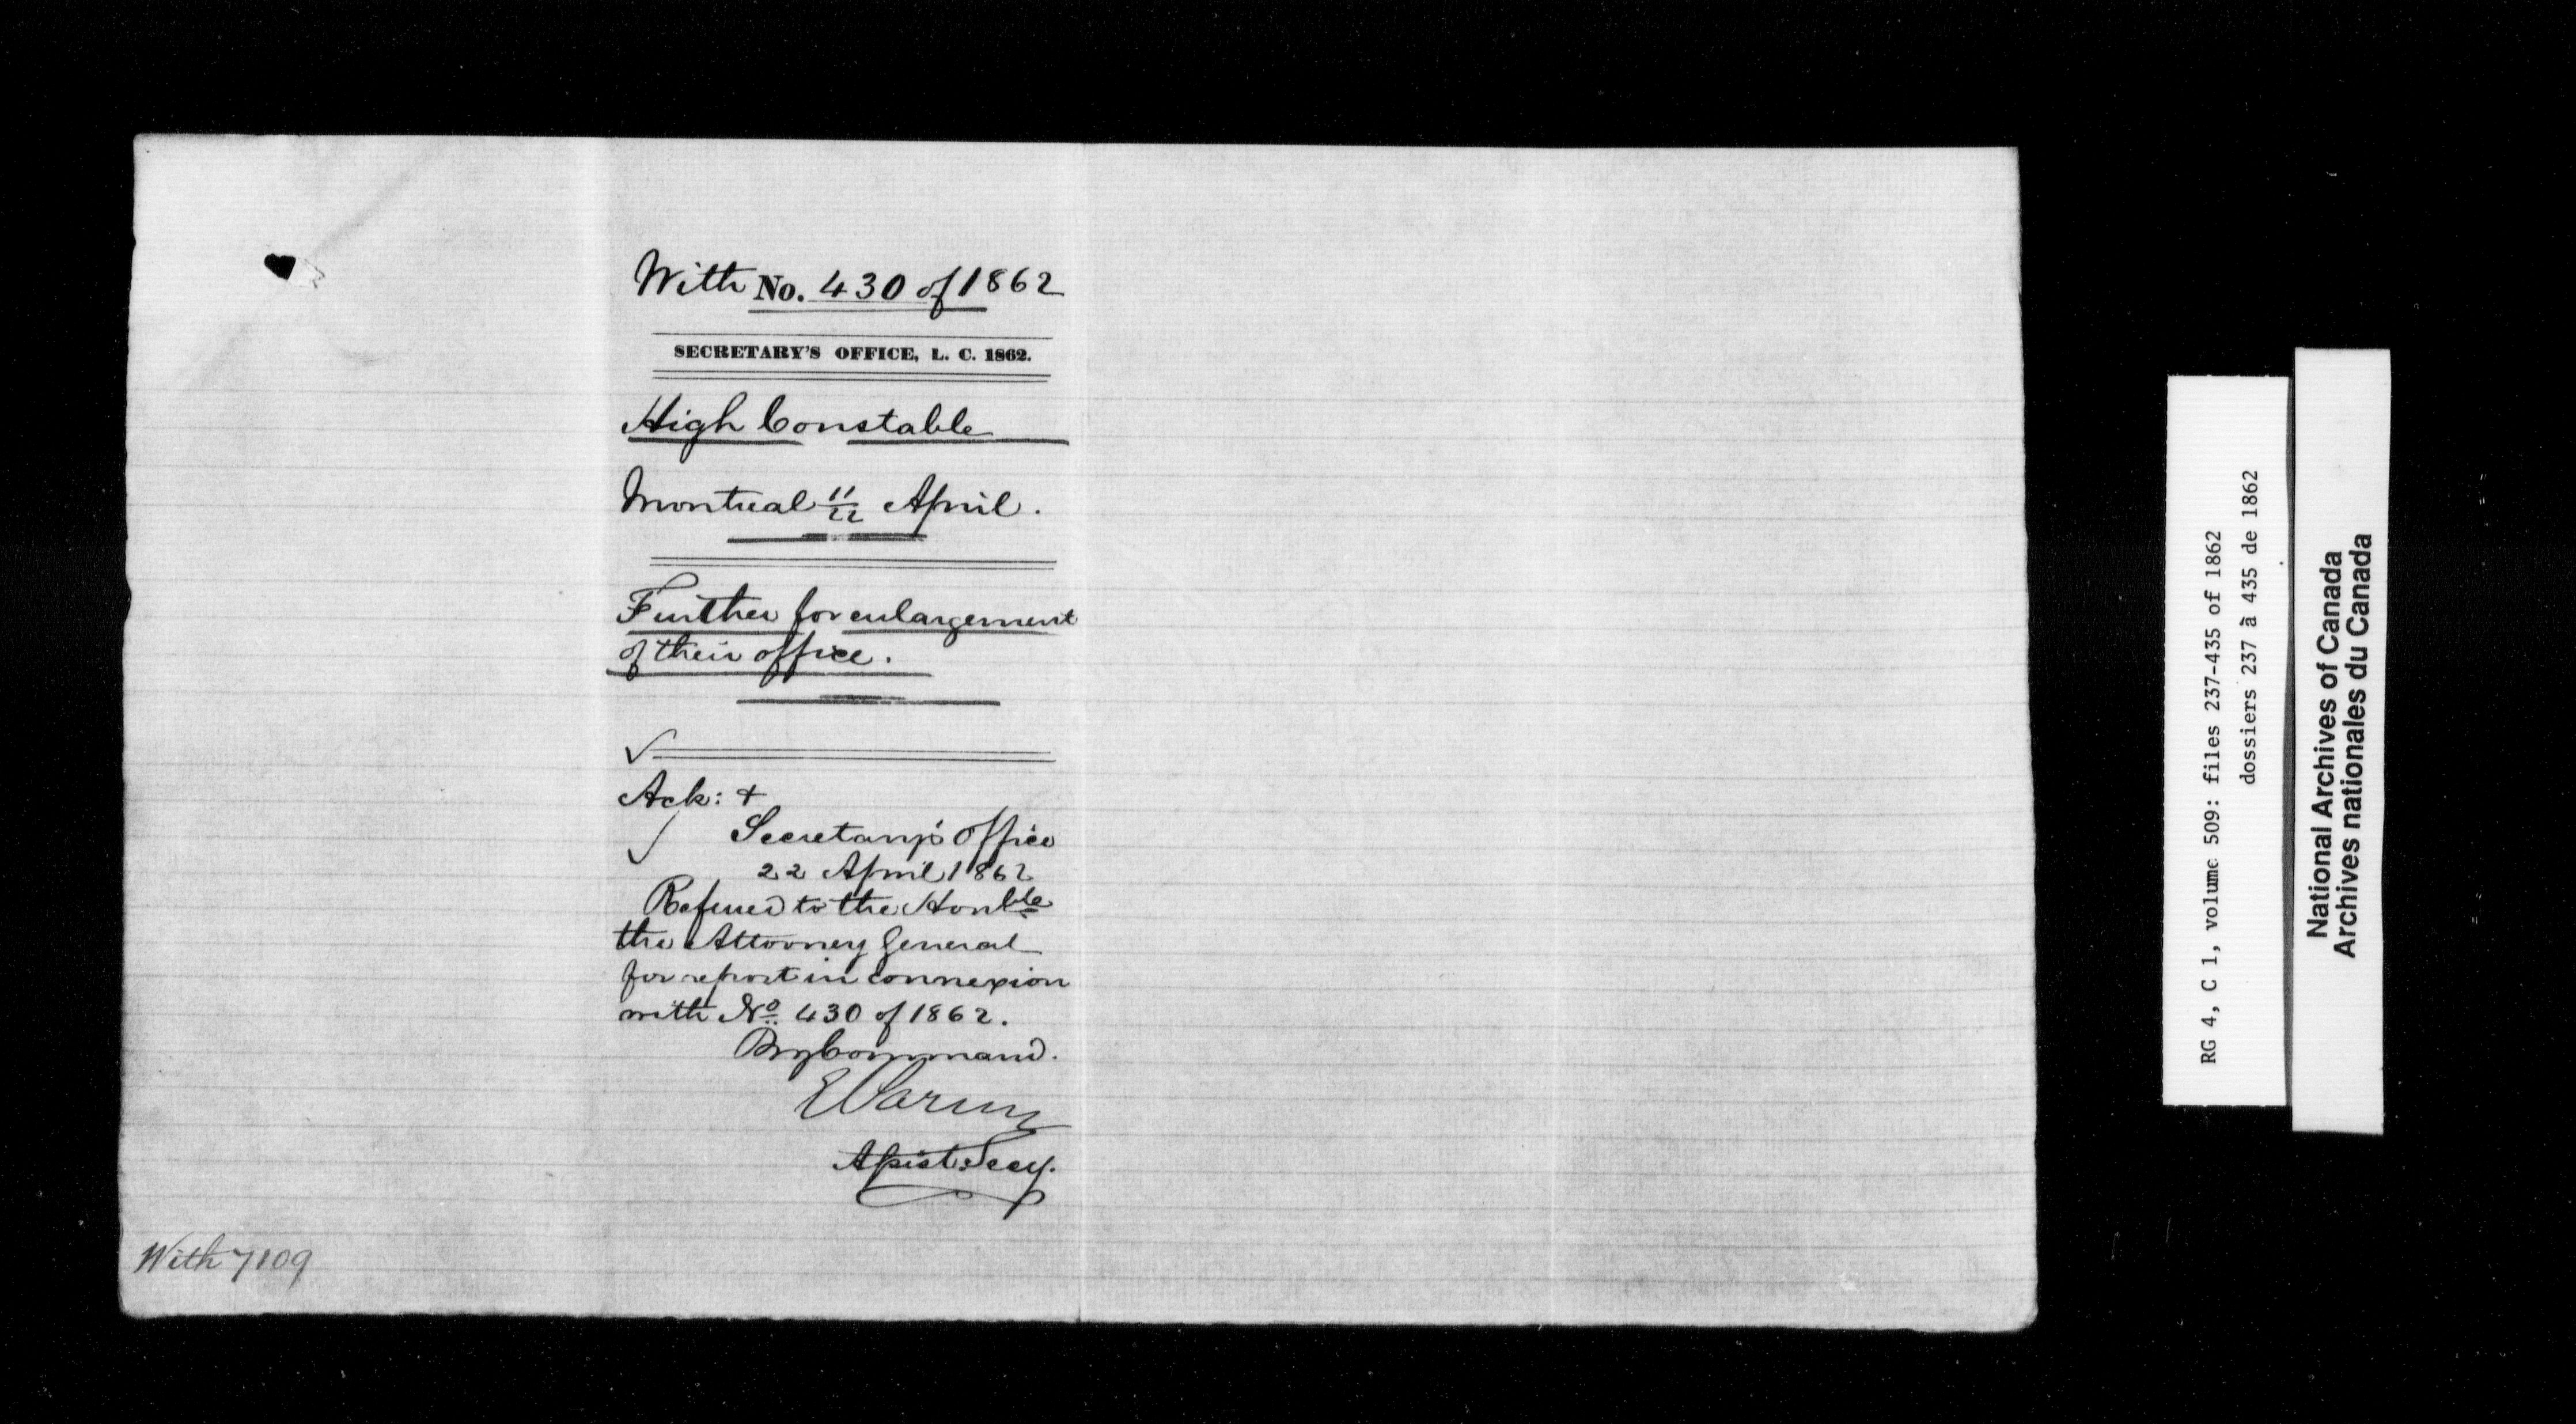 With No. 430 of 1862
SECRETARY'S OFFICE, L. C. 1862.
High Constable
Montreal 11/22 April.
Further for enlargement
of their office.
Ack: +
Secretary's Office
22 April 1862
Referred to the Honble
the Attorney General
for report in connexion
with No. 430 of 1862.
By Command.
E Parent
Assist: Secy.
With 7109
RG 4, C 1, volume 509: files 237-435 of 1862
dossiers 237 à 435 de 1862
National Archives of Canada
Archives nationales du Canada